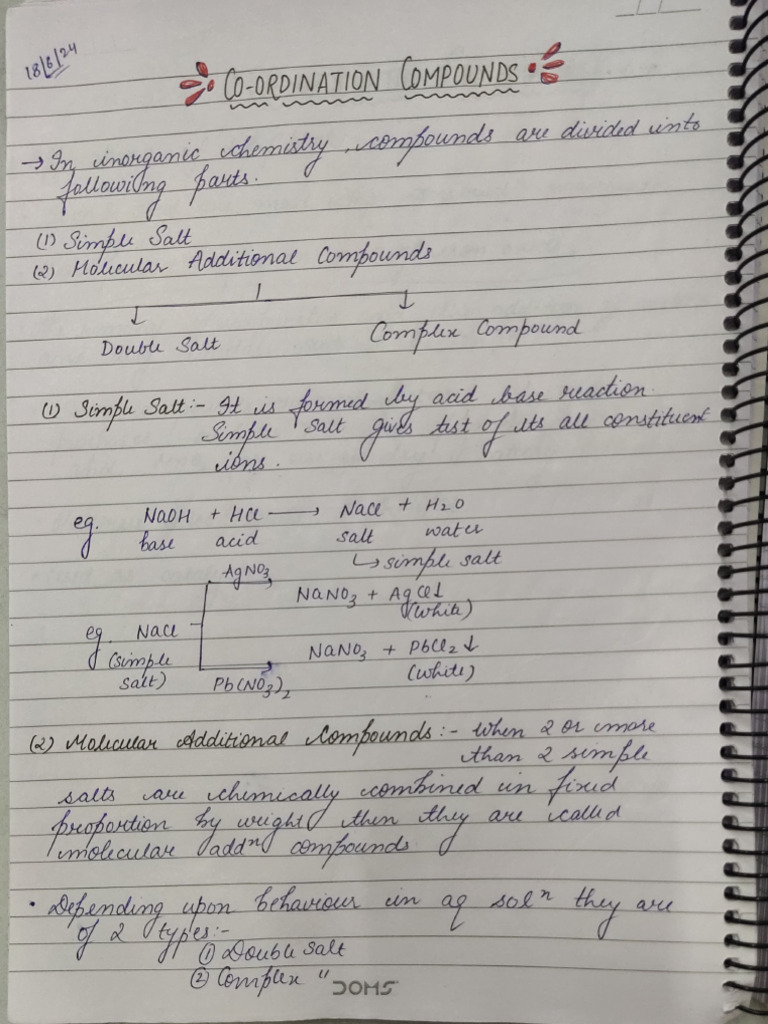 18/6/24
CO-ORDINATION COMPOUNDS
→ In inorganic chemistry, compounds are divided into
following parts.
(1) Simple Salt
(2) Molecular Additional Compounds
↓ ↓
Double Salt Complex Compound
(1) Simple Salt :- It is formed by acid base reaction.
Simple Salt gives test of its all constituent
ions.
eg. NaOH + HCl ⟶ NaCl + H2O
base acid salt water
↳ simple salt
AgNO3
NaNO3 + AgCl↓
(white)
eg. NaCl
(simple
salt)
NaNO3 + PbCl2↓
(white)
Pb(NO3)2
(2) Molecular Additional Compounds :- When 2 or more
than 2 simple
salts are chemically combined in fixed
proportion by wright then they are called
molecular addn compounds
• Depending upon behaviour in aq soln they are
of 2 types:-
① Double salt
② Complex "
DOMS